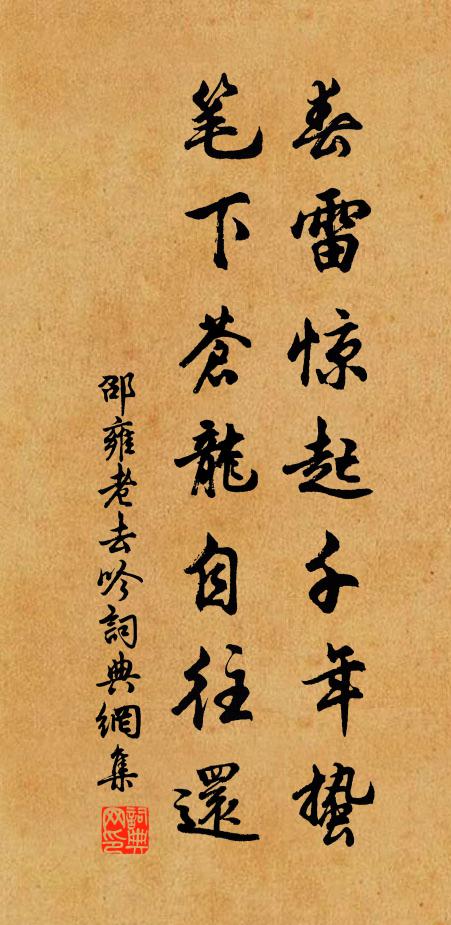 春雷惊起千年蛰
笔下蒼龍自往還
邵雍老去吟詞典網集
詞典网印